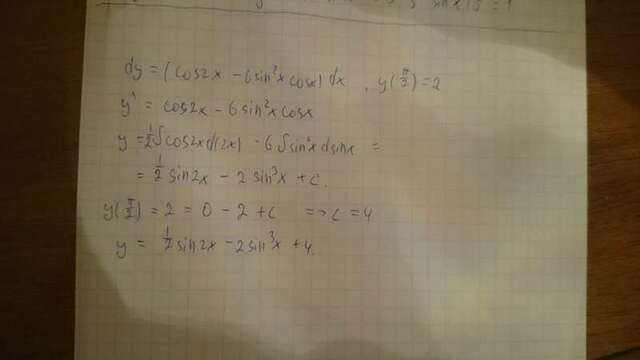 sinx/5 = 1
dy = (cos2x - 6sin²x cosx) dx , y(π/2) = 2
y' = cos2x - 6sin²x cosx
y = 1/2 ∫cos2x d(2x) - 6∫sin²x dsinx =
= 1/2 sin2x - 2sin³x + C.
y(π/2) = 2 = 0 - 2 + C => C = 4
y = 1/2 sin2x - 2sin³x + 4.